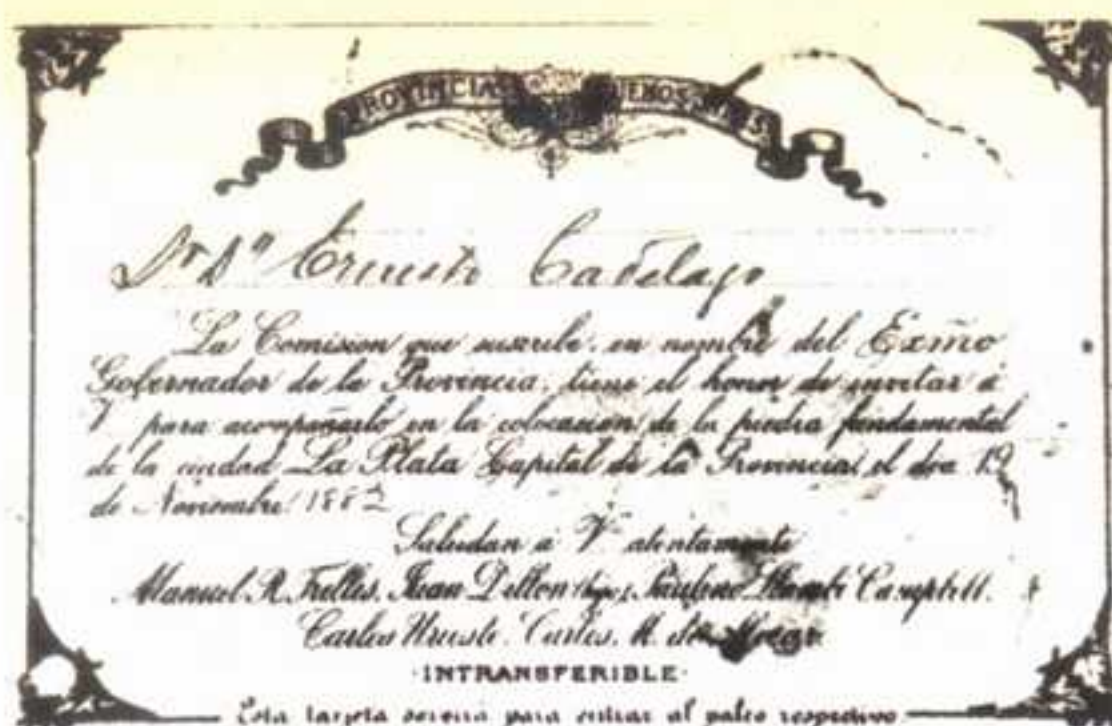 PROVINCIA BUENOS AIRES
Dr Dn Ernesto
La Comision que suscribe, en nombre del Exmño
Gobernador de la Provincia, tiene el honor de invitar á
V para acompañarlo en la colocacion de la piedra fundamental
de la ciudad La Plata Capital de la Provincia, el dia 19
de Noviembre 1882
Saludan á V atentamente
Manuel R. Trelles, Juan Dillon (hijo), Paulino Llambi Campbell.
Carlos
·INTRANSFERIBLE·
Esta tarjeta servirá para entrar al palco respectivo